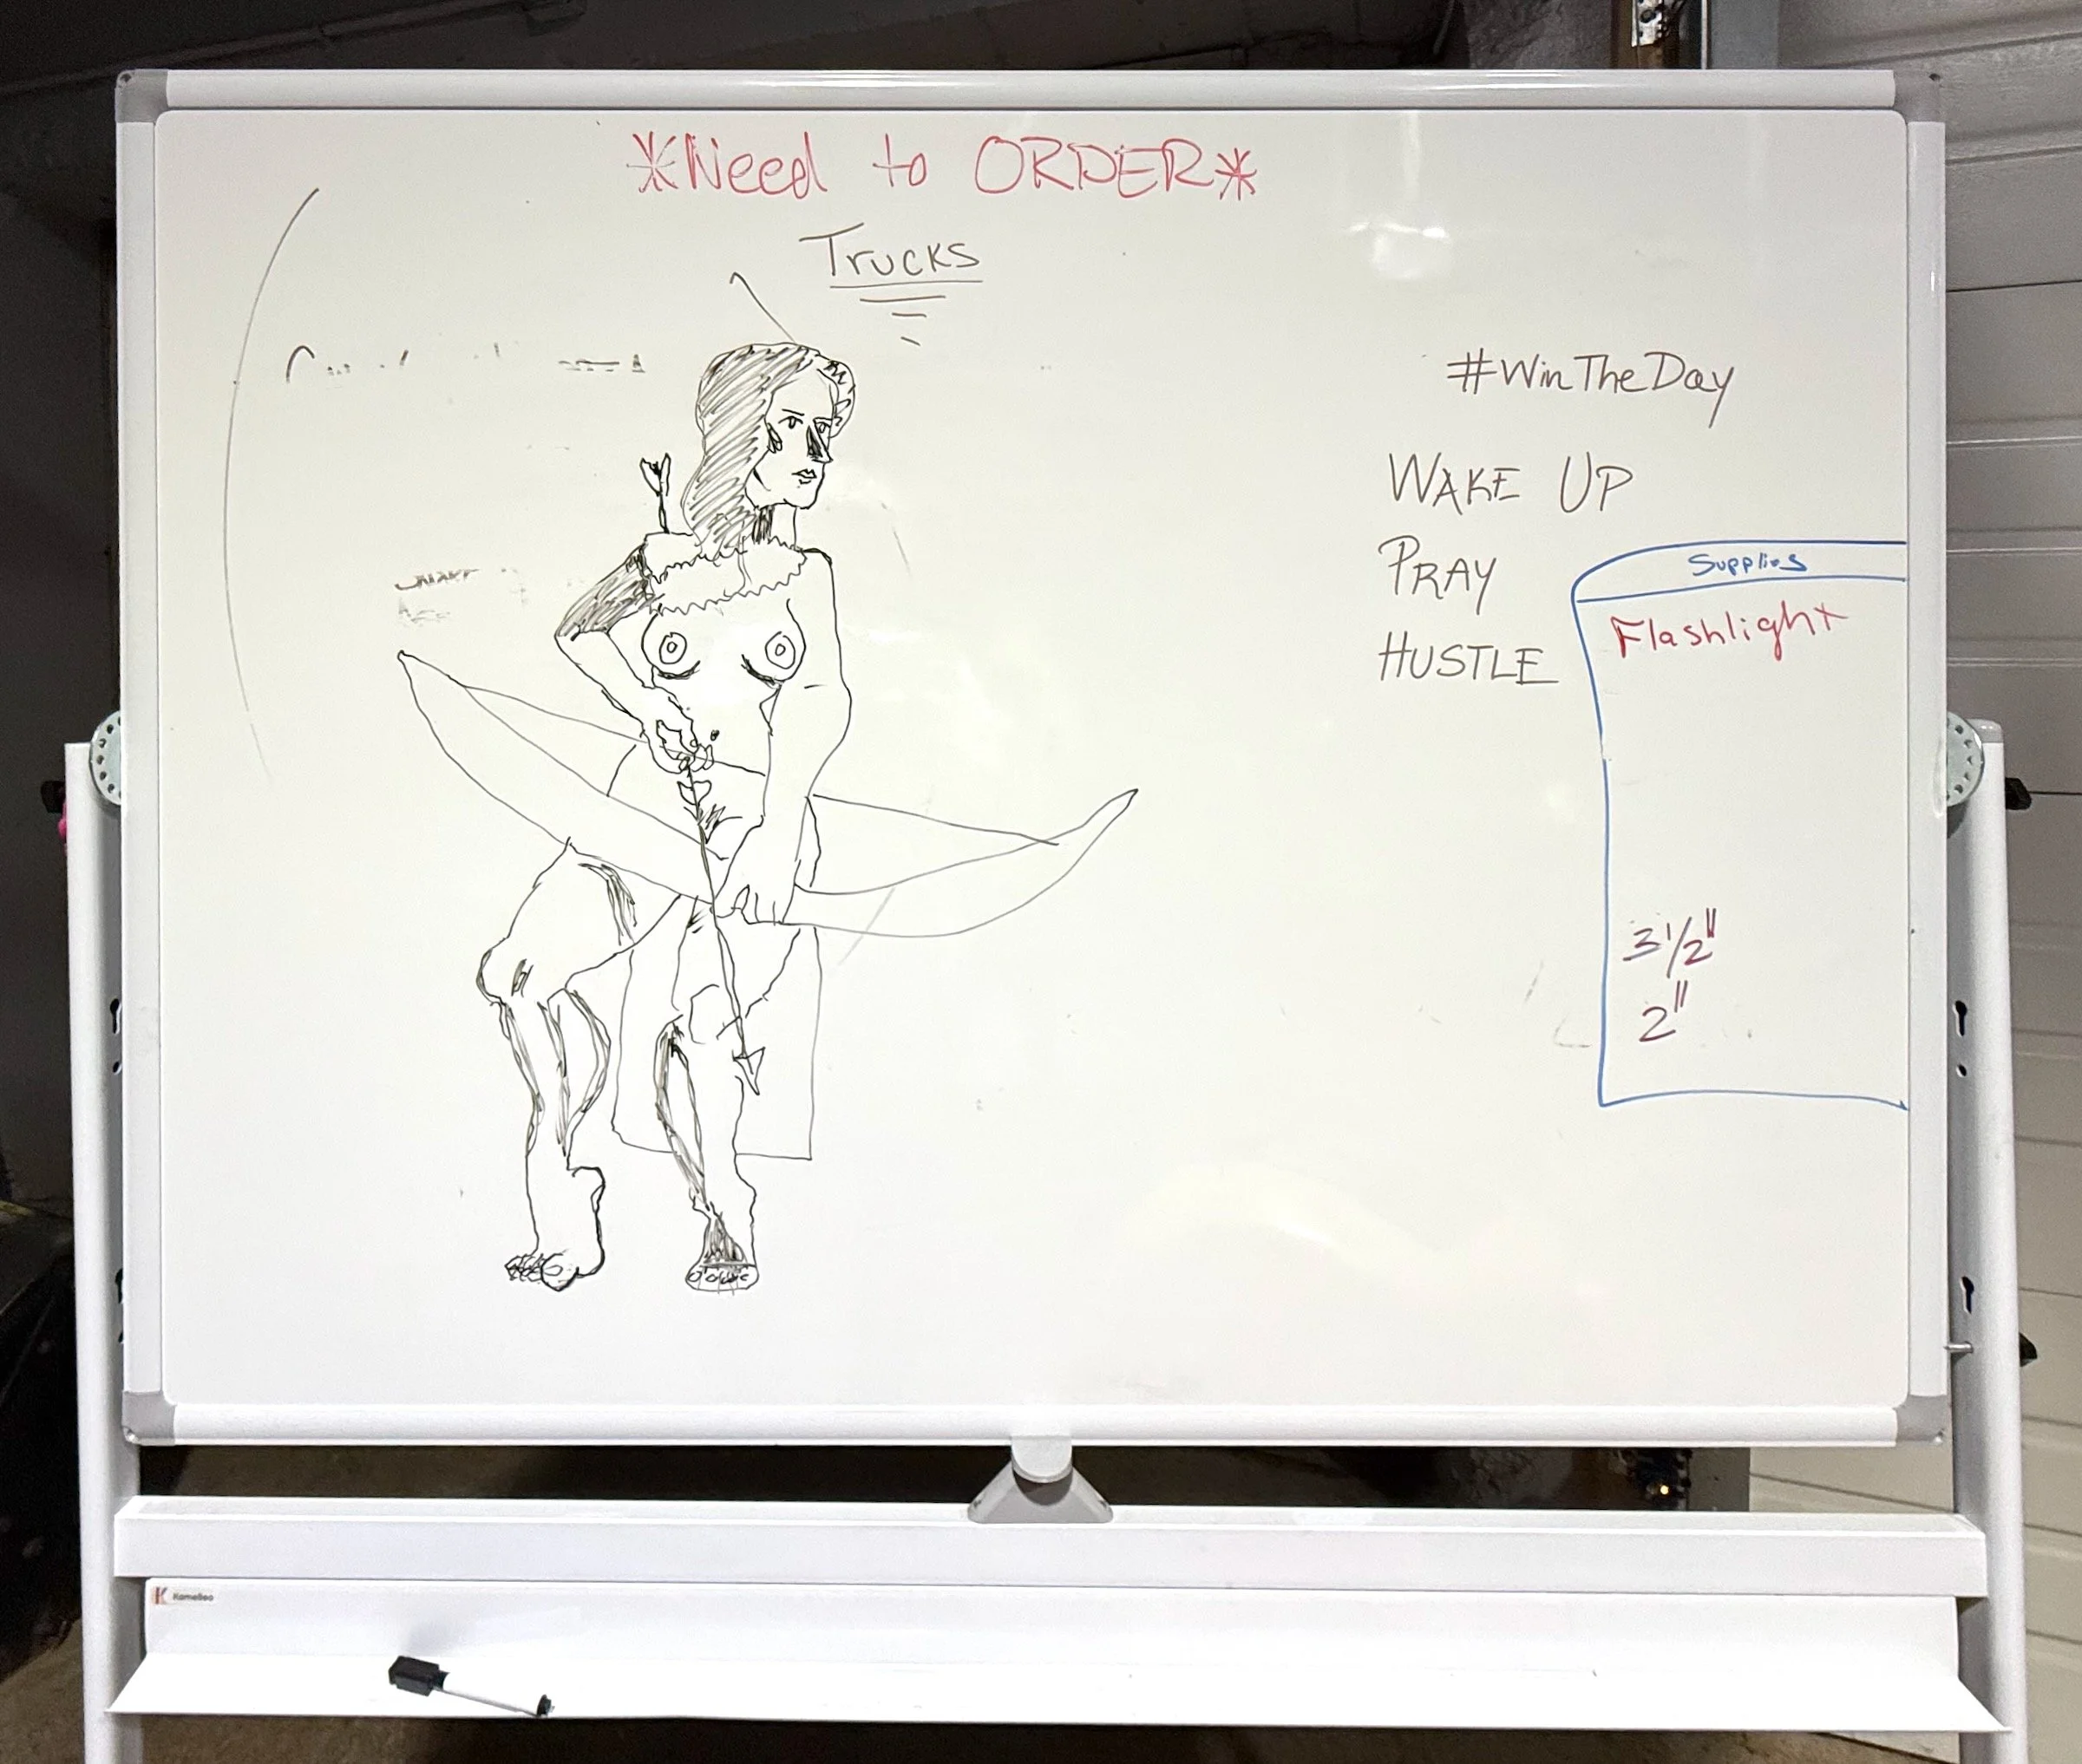 *Need to ORDER*
Trucks
#WinTheDay
WAKE UP
PRAY
HUSTLE
Supplies
Flashlight
3 1/2"
2"
Kamelleo